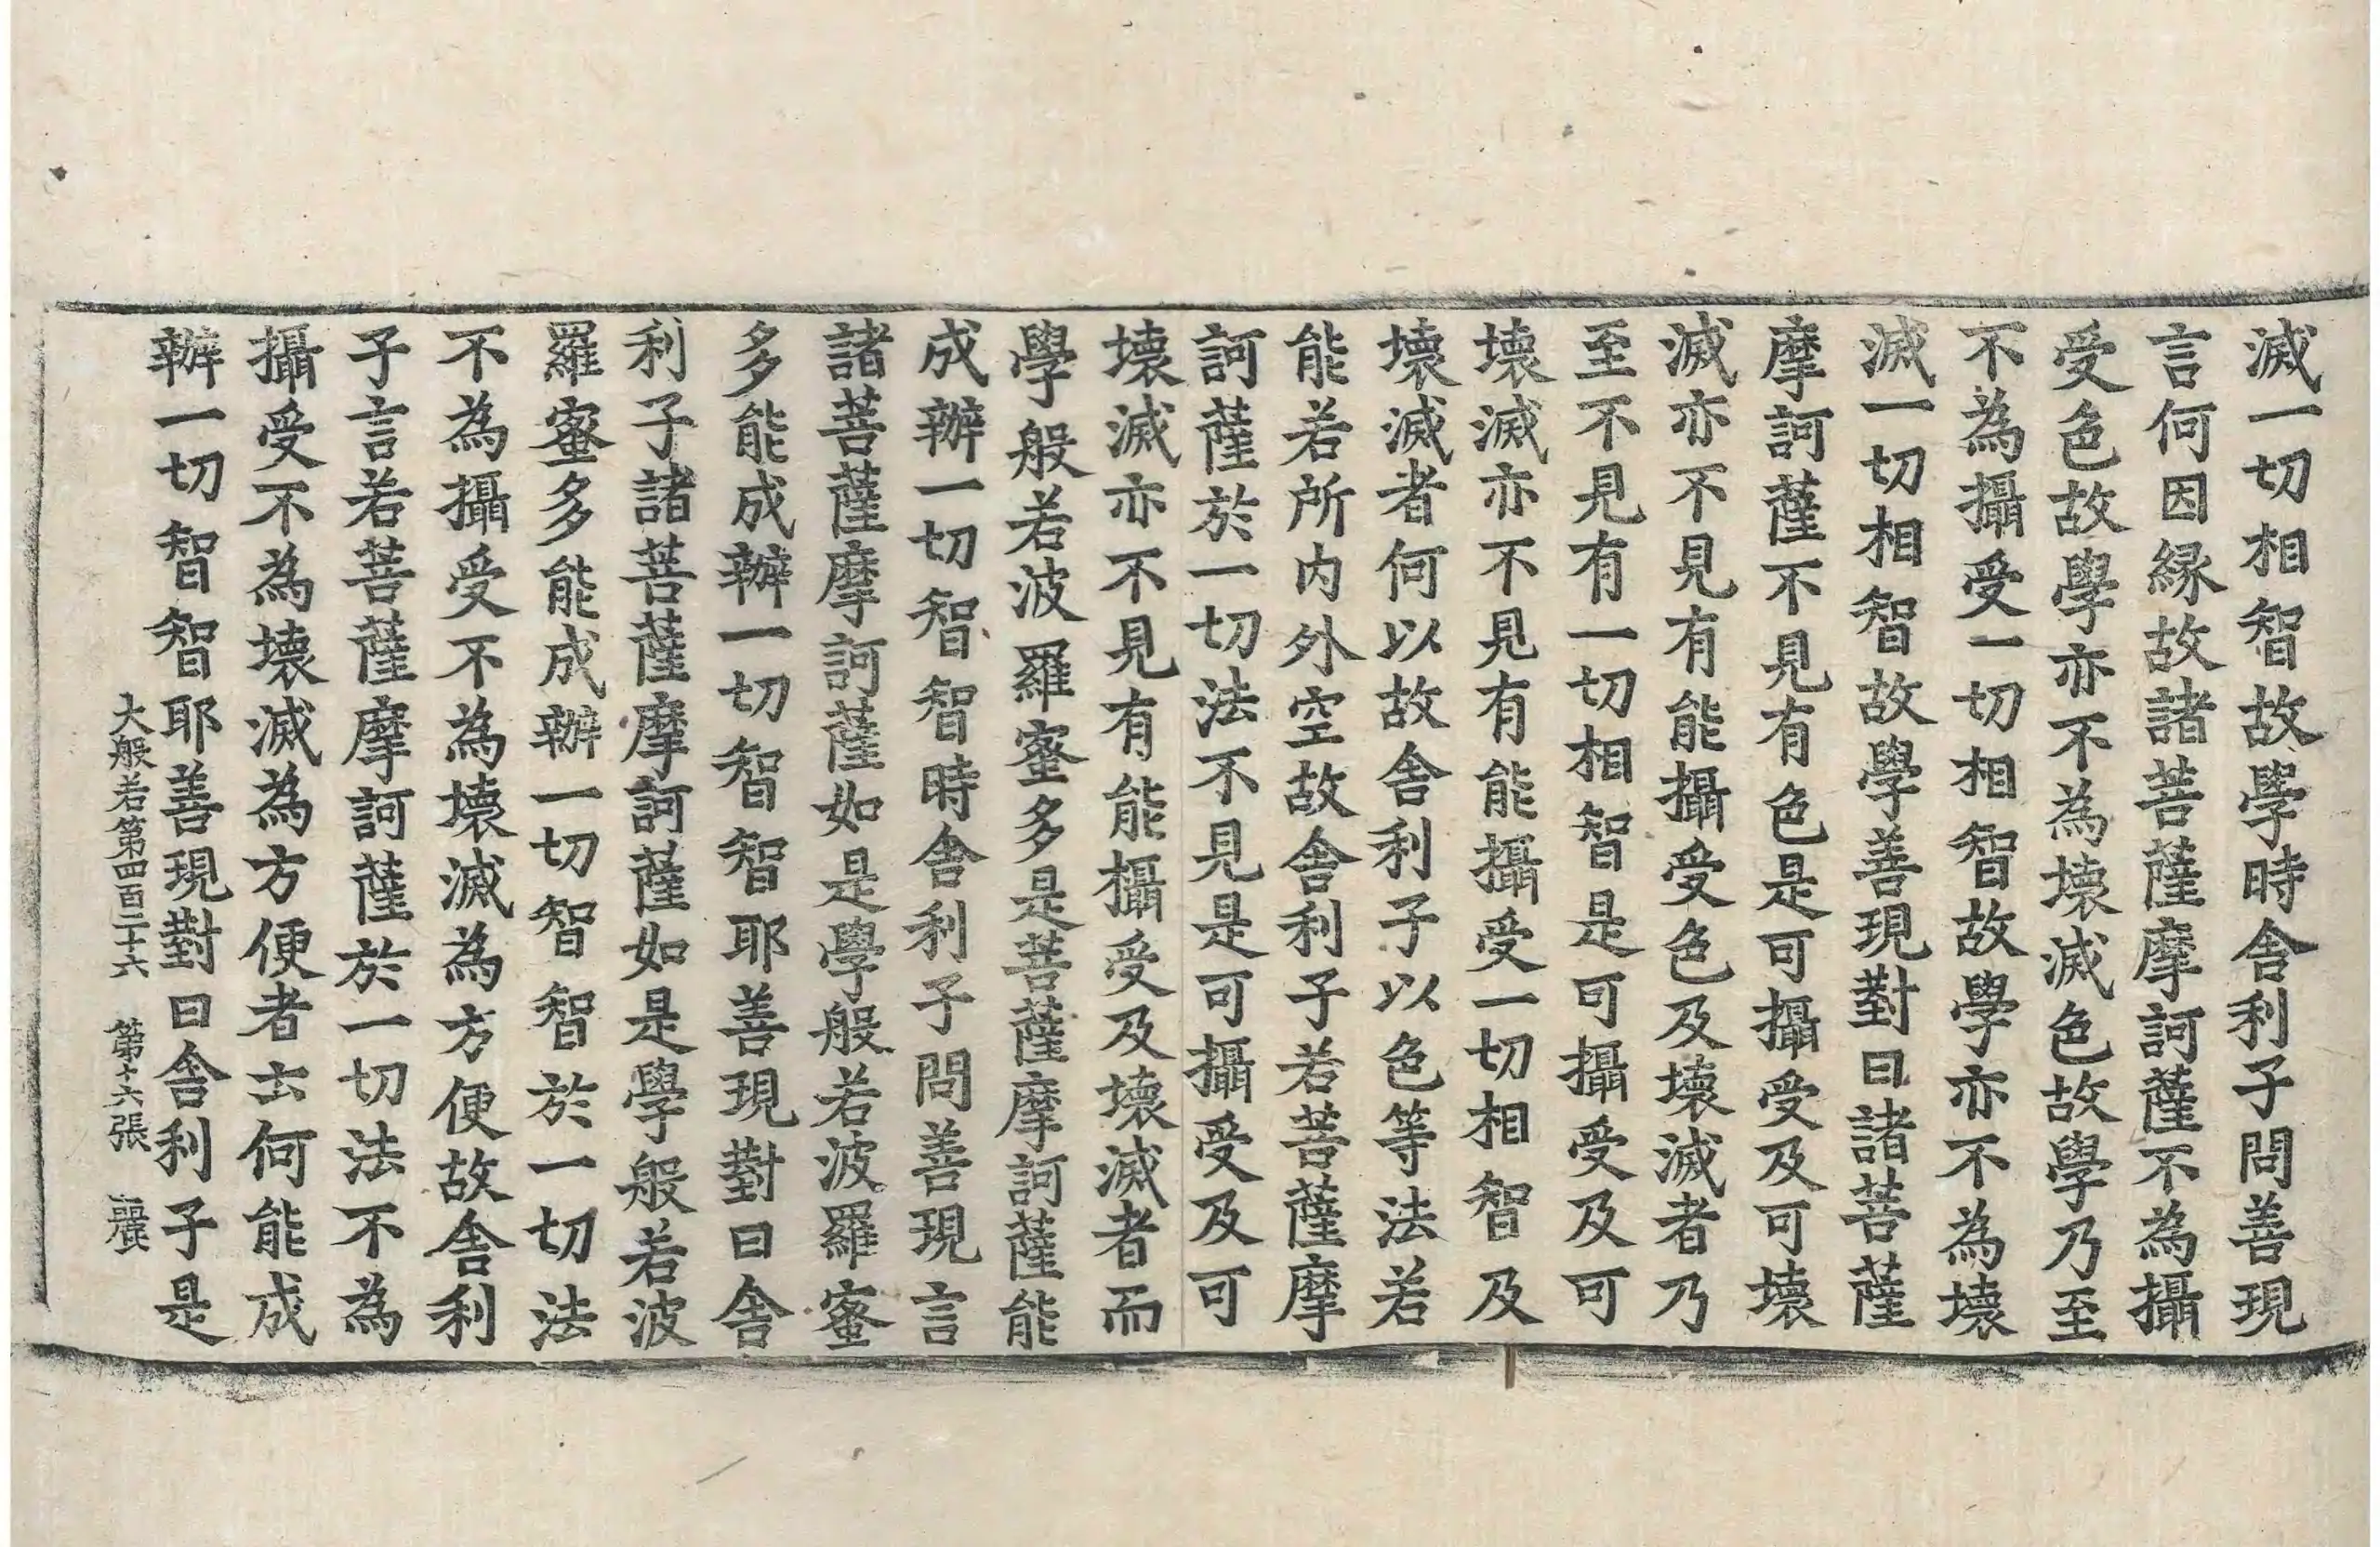 滅一切相智故學時舍利子問善現
言何因緣故諸菩薩摩訶薩不為攝
受色故學亦不為壞滅色故學乃至
不為攝受一切相智故學亦不為壞
滅一切相智故學善現對曰諸菩薩
摩訶薩不見有色是可攝受及可壞
滅亦不見有能攝受色及壞滅者乃
至不見有一切相智是可攝受及可
壞滅亦不見有能攝受一切相智及
壞滅者何以故舍利子以色等法若
能若所內外空故舍利子若菩薩摩
訶薩於一切法不見是可攝受及可
壞滅亦不見有能攝受及壞滅者而
學般若波羅蜜多是菩薩摩訶薩能
成辦一切智智時舍利子問善現言
諸菩薩摩訶薩如是學般若波羅蜜
多能成辦一切智智耶善現對曰舍
利子諸菩薩摩訶薩如是學般若波
羅蜜多能成辦一切智智於一切法
不為攝受不為壞滅為方便故舍利
子言若菩薩摩訶薩於一切法不為
攝受不為壞滅為方便者云何能成
辦一切智智耶善現對曰舍利子是
大般若第四百二十六 第十六張 麗